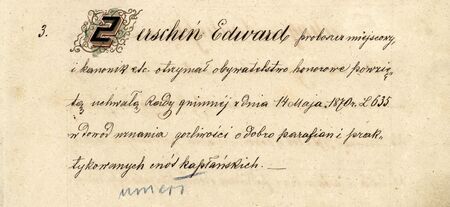 3. Zerscheń Edward, proboszcz miejscowy,
i kanonik etc. otrzymał obywatelstwo honorowe powzię-
tą uchwałą Rady gminnej z dnia 14 Maja 1870 r. L 635
w dowód uznania gorliwości o dobro parafian i prak-
tykowanych cnót kapłańskich. —
umarł